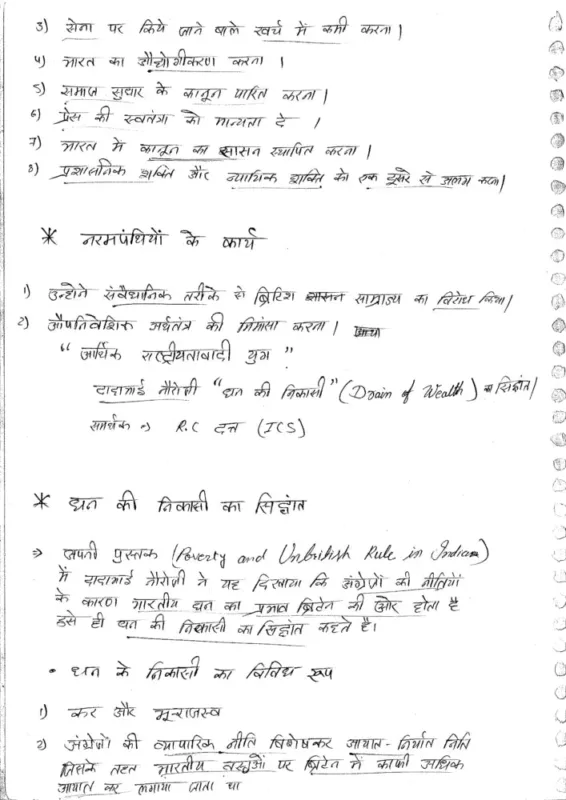 3) सेना पर किये जाने बाले खर्च में कमी करना।
4) भारत का औद्योगीकरण करना।
5) समाज सुधार के कानून पारित करना।
6) प्रेस की स्वतंत्रा को मान्यता दे ।
7) भारत मे कानून का सासन स्थापित करना।
8) प्रशासनिक शक्ति और न्यायिक शक्ति को एक दूसरे से अलग करना।
* नरमपंथियों के कार्य
1) उन्होने संवैधानिक तरीके से ब्रिटिश सामाज्य का विरोध किया।
2) औपनिवेशिक अर्थतंत्र की मिमांसा करना।
"आर्थिक राष्ट्रीयतावादी युग"
दादाभाई नौरोजी "धन की निकासी" (Drain of Wealth) का सिद्वांत।
समर्थक ⇒ R.C दत्त (ICS)
* धन की निकासी का सिद्वांत
⇒ अपनी पुस्तक (Poverty and Unbritish Rule in Indian)
में दादाभाई नौरोजी ने यह दिखाया कि अंग्रेजों की नीतियों
के कारण भारतीय धन का प्रभाव ब्रिटेन की ओर होता है
इसे ही धन की निकासी का सिद्वांत कहते है।
• धन के निकासी का विविध रूप
1) कर और भू-राजस्व
2) अंग्रेजों की व्यापारिक नीति बिशेषकर आयात-निर्यात निति
जिसके तहत भारतीय वस्तुओं पर ब्रिटेन में काफी अधिक
आयात कर लगाया जाता था